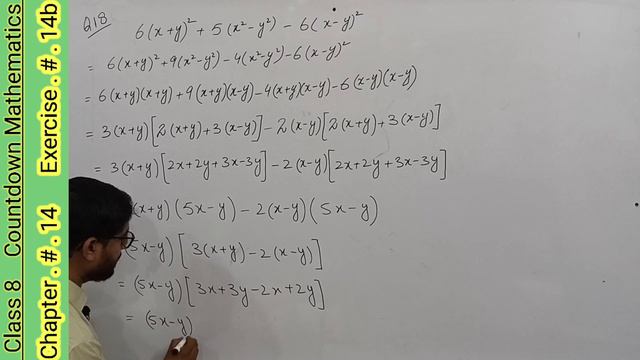 Class 8 Countdown Mathematics
Chapter.#.14 Exercise.#.14b
Q18 6(x+y)² + 5(x²-y²) - 6(x-y)²
= 6(x+y)² + 9(x²-y²) - 4(x²-y²) - 6(x-y)²
= 6(x+y)(x+y) + 9(x+y)(x-y) - 4(x+y)(x-y) - 6(x-y)(x-y)
= 3(x+y)[2(x+y) + 3(x-y)] - 2(x-y)[2(x+y) + 3(x-y)]
= 3(x+y)[2x+2y+3x-3y] - 2(x-y)[2x+2y+3x-3y]
(x+y)(5x-y) - 2(x-y)(5x-y)
(5x-y)[3(x+y) - 2(x-y)]
= (5x-y)[3x+3y-2x+2y]
= (5x-y)